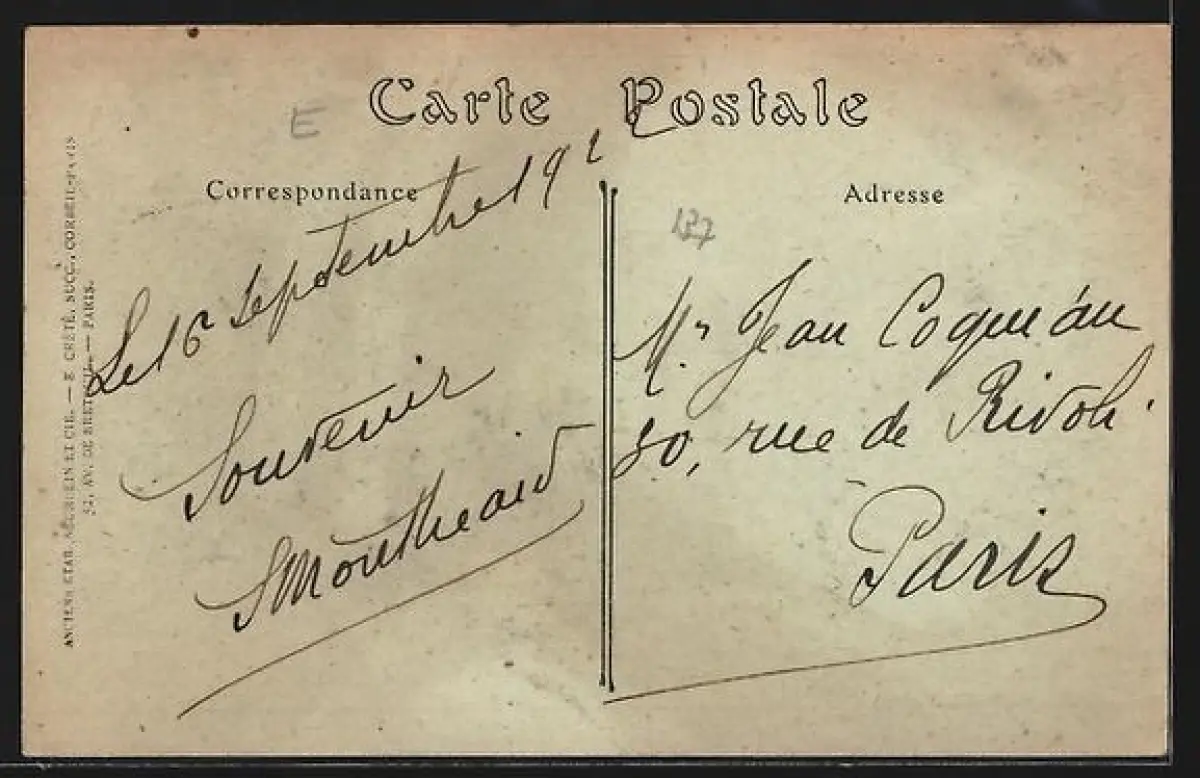 Carte Postale
E
Correspondance
Adresse
Le 16 Septembre 192
Souvenir
Mr Jean
30, rue de Rivoli
Paris
ANCIENS ETAB. NEURDEIN ET CIE. — E. CRÉTÉ, SUCC., CORBEIL-PARIS
52, AV. DE BRETEUIL. — PARIS.